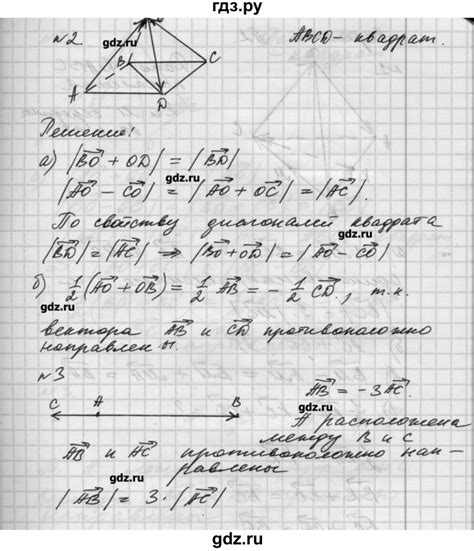 гдз.ру
№2
gdz.ru
ABCD - квадрат.
B
C
A
D
Решение:
gdz.ru
а) |BO + OD| = |BD|
|AO - CO| = |AO + OC| = |AC|.
По свойству диагоналей квадрата
gdz.ru
|BD| = |AC| ⇒ |BO + OD| = |AO - CO|
б) 1/2 (AO + OB) = 1/2 AB = - 1/2 CD, т.к.
gdz.ru
вектора AB и CD противоположно
направлены.
№3
gdz.ru
C A B
AB = -3AC.
A расположена
между B и C
AB и AC противоположно нап-
равлены
gdz.ru
|AB| = 3·|AC|
gdz.ru
gdz.ru